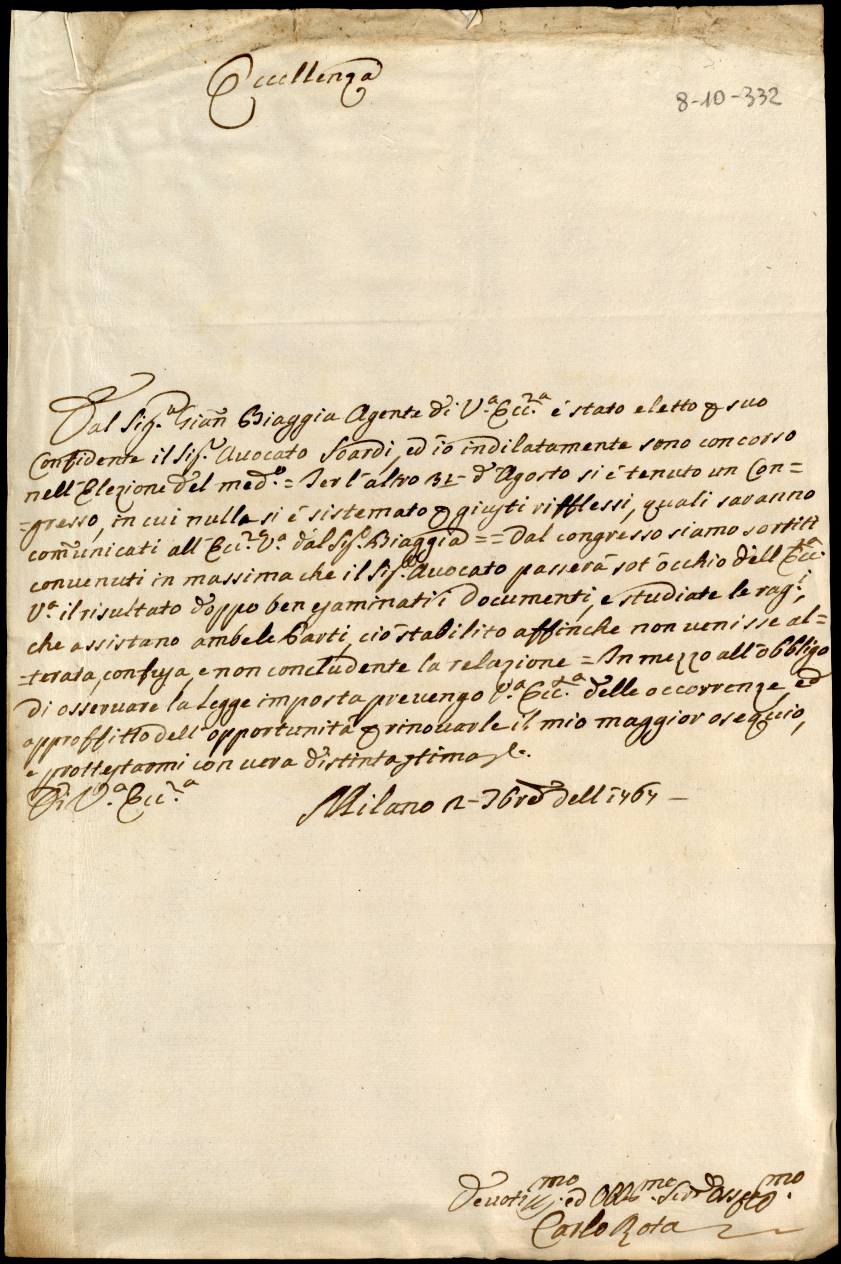 Eccellenza
8-10-332
Dal Sig.r Gian Biaggia Agente di V.a Ecc.za é stato eletto p suo
Confidente il Sig.r Avocato Soardi, ed io indilatamente sono concorso
nell'Elezione del med.o = Jer l'altro 31- d'Agosto si é tenuto un Con=
=gresso, in cui nulla si é sistemato p giusti rifflessi, quali saranno
comunicati all'Ecc.za V.a dal Sig.r Biaggia == dal congresso siamo sortiti
convenuti in massima che il Sig.r Avocato passerá sot'occhio dell'Ecc.za
V.a il risultato doppo ben esaminati i Documenti, e studiate le ragi.i,
che assistano ambe le Parti, ció stabilito affinche non venisse al=
=terata, confusa, e non concludente la relazione = In mezzo all'obbligo
di osservare la Legge imposta prevengo V.a Ecc.za delle occorrenze, ed
approffitto dell'opportunitá p rinovarle il mio maggior ossequio,
e prottestarmi con vera distinta stima
Di V.a Ecc.za
Milano 2- 7bre dell 1767 -
Devotis.mo ed Obblig.mo Ser.
Carlo Rota